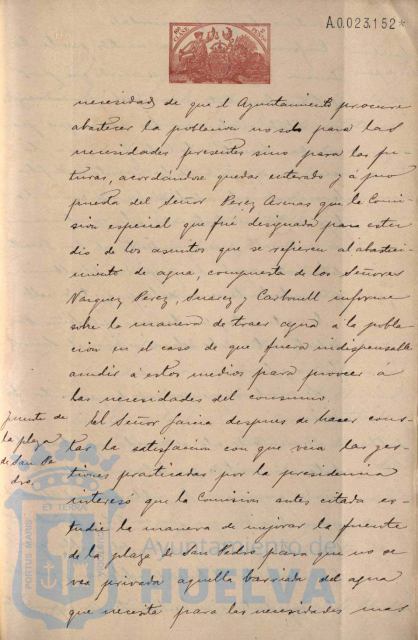 A.0.023.152*
necesidad de que el Ayuntamiento procure
abastecer la poblacion no solo para las
necesidades presentes sino para las fu-
turas, acordándose quedar enterado y á pro
puesta del Señor Perez Arenas que la Comi-
sion especial que fué designada para estu
dio de los asuntos que se refieren al abasteci-
miento de agua, compuesta de los Señores
Vazquez Perez, Suarez y Carbonell informe
sobre la manera de traer agua á la pobla-
cion en el caso de que fuera indispensable
acudir á estos medios para proveer a
las necesidades del consumo.
fuente de
la plaza
de San Pe
dro.
El Señor Garcia despues de hacer cons-
tar la satisfaccion con que veia las ges-
tiones practicadas por la presidencia
interesó que la Comision antes citada es-
tudie la manera de mejorar la fuente
de la plaza de San Pedro para que no se
vea privada aquella barriada del agua
que necesita para las necesidades mas
PORTUS MARIS ET TERRAE
Ayuntamiento de
HUELVA